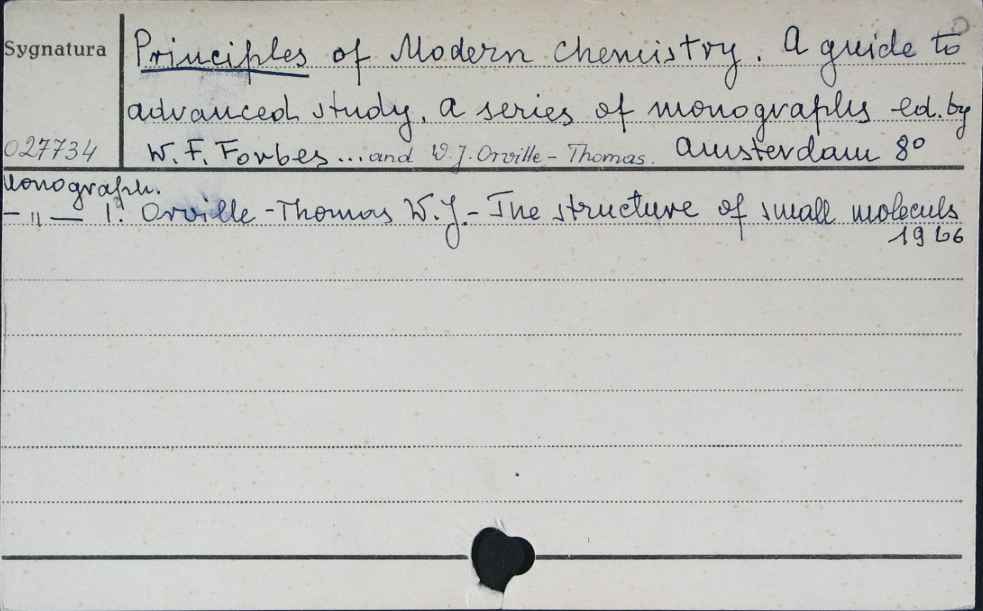 Sygnatura
Principles of Modern Chemistry. A guide to
advanced study. A series of monographs ed. by
027734 W. F. Forbes ... and W. J. Orville-Thomas. Amsterdam 8°
Monograph.
— " — 1. Orville-Thomas W. J. - The structure of small moleculs
1966